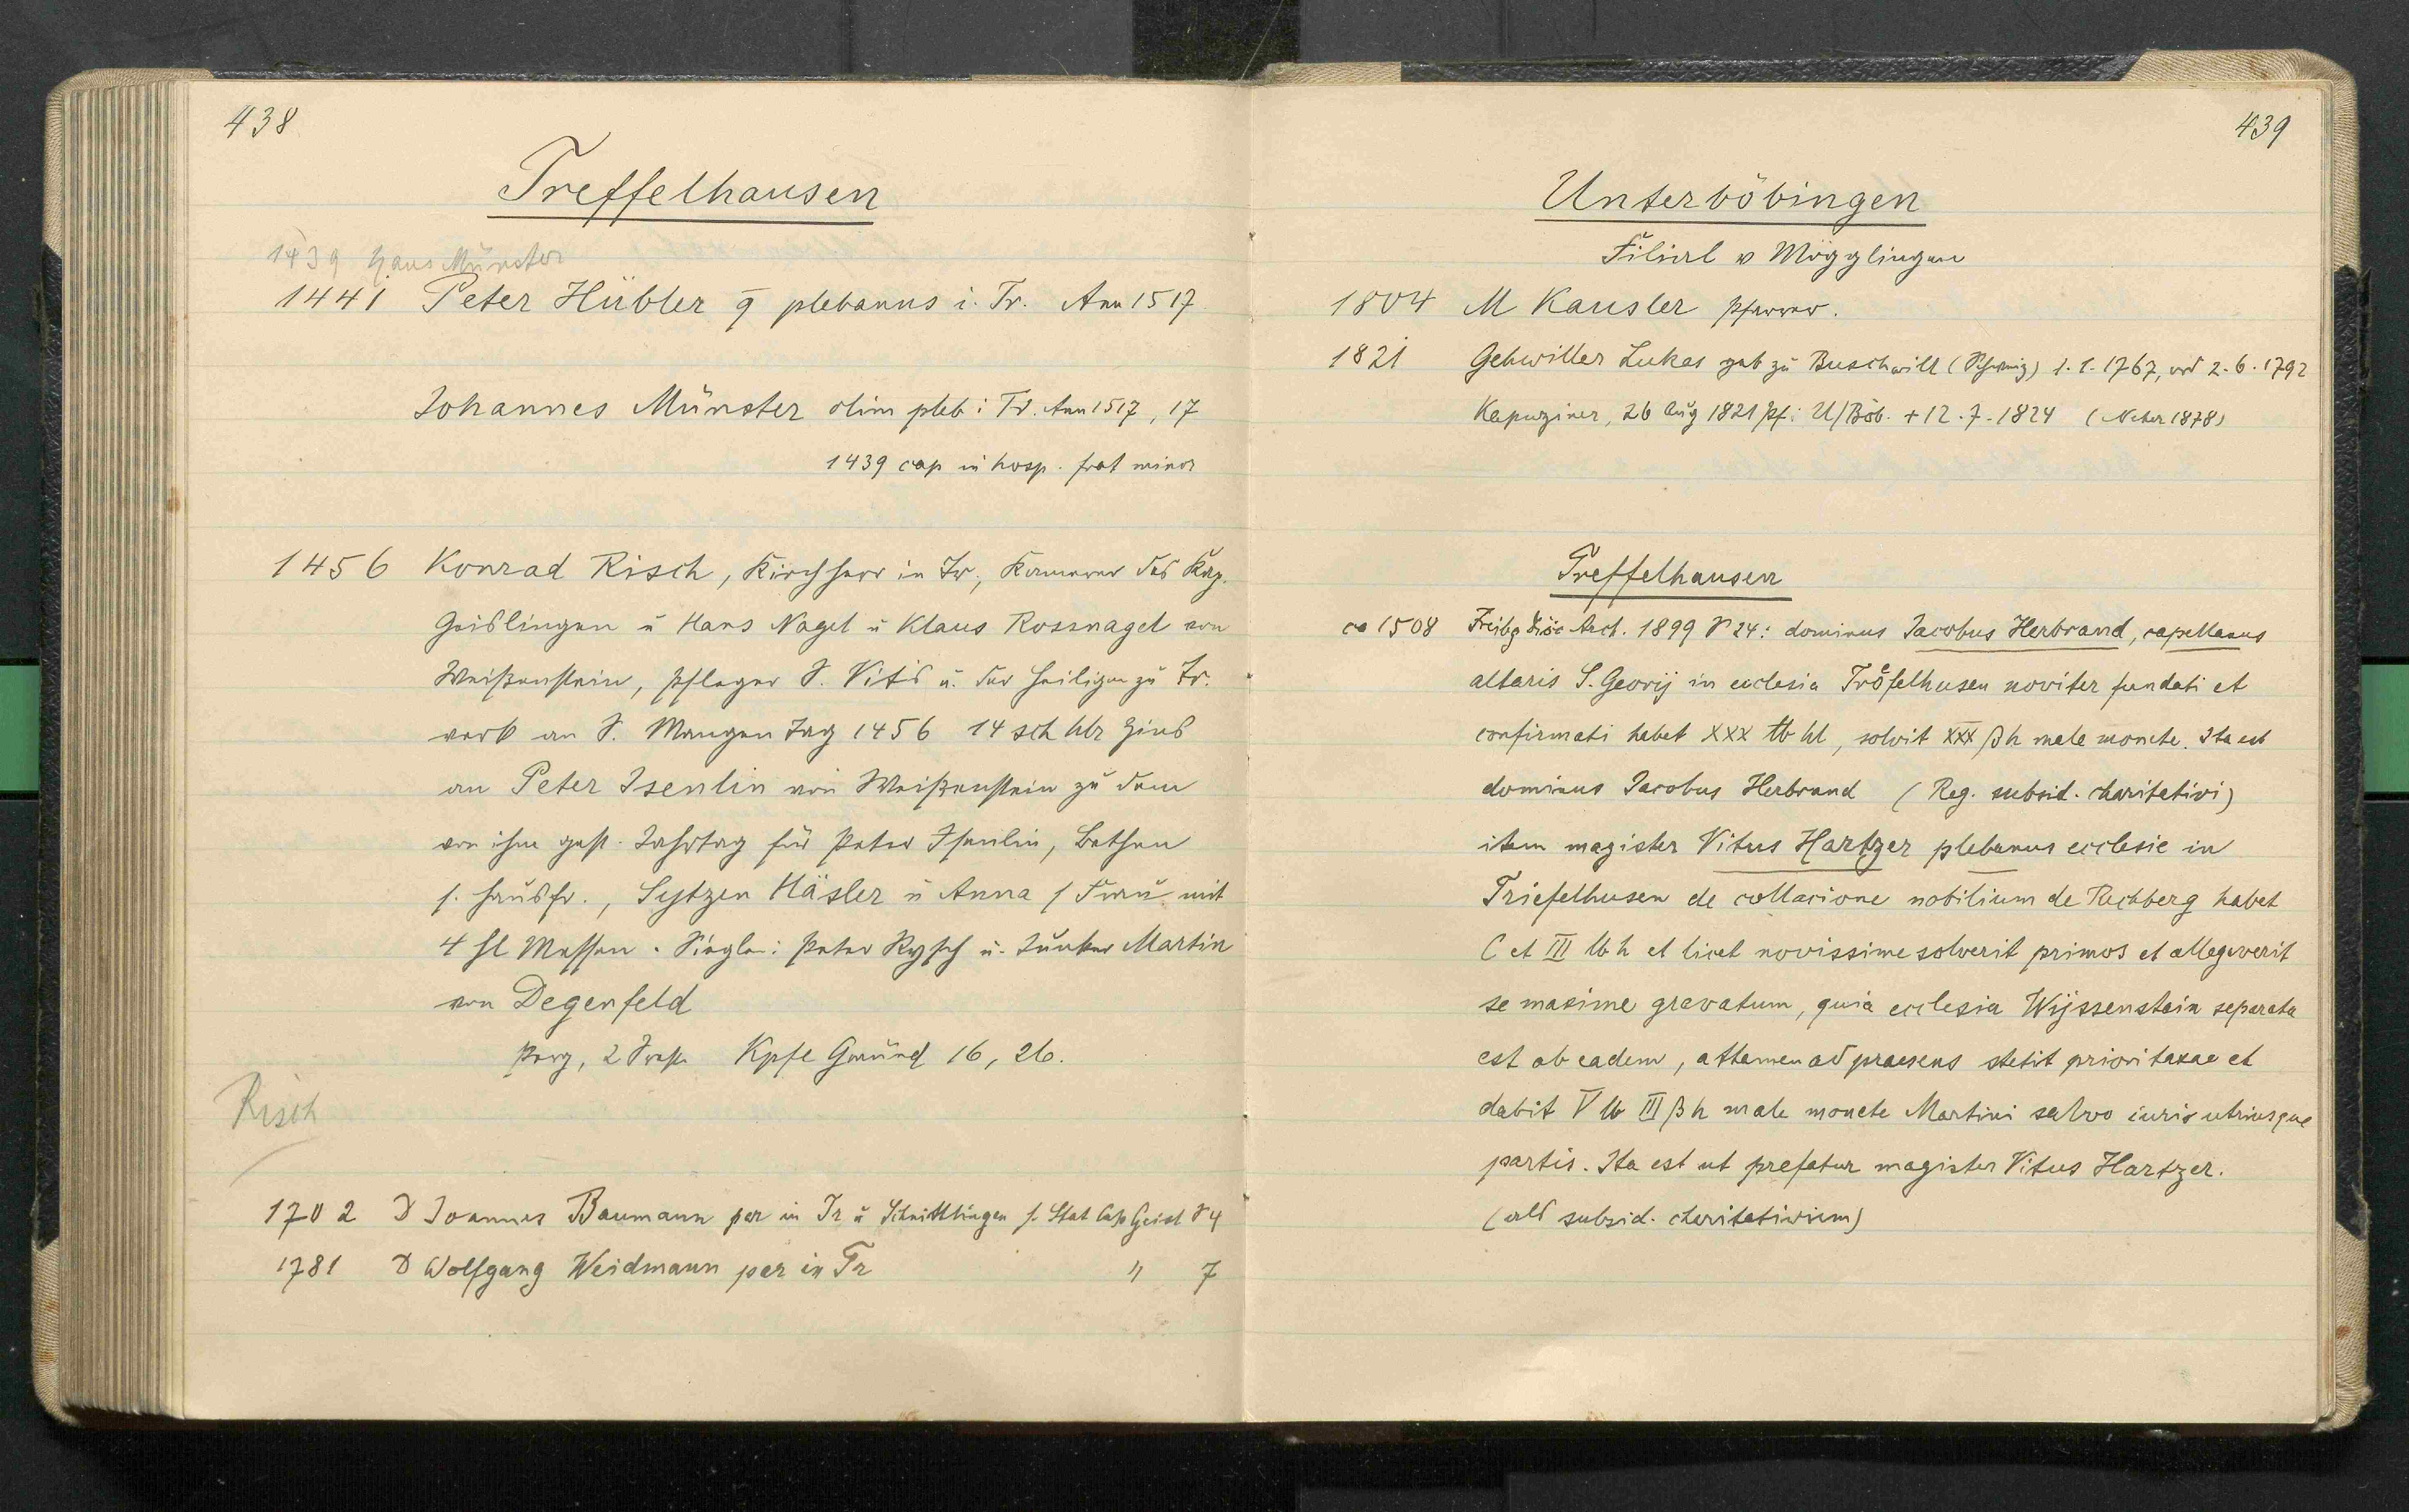 438
Treffelhausen
1439 Hans Münster
1441 Peter Hübler plebanus i. Tr. Ann 1517
Johannes Münster olim pleb i Tr. Ann 1517, 17
1439 cap in hosp. frat minor
1456 Konrad Risch, Kirchherr in Tr., Kammerer des Kap.
Geislingen u Hans Nagel u Klaus Rossnagel von
Weißenstein, Pfleger S. Vits u. der Heiligen zu Tr.
verk an S. Mangen Tag 1456 14 sch hlr Zins
an Peter Isenlin von Weißenstein zu dem
von ihm gest. Jahrtag für Peter Isenlin, Bethen
s. Hausfr., Seytzen Häsler u Anna s Frau mit
4 hl Messen. Siegler: Peter Rysch u. Junker Martin
von Degenfeld
Perg, 2 Kpfl Gmünd 16, 26.
Risch
1702 D Joannes Baumann par in Tr u Schnittlingen s. Stat Cap Geisl S 4
1781 D Wolfgang Weidmann par in Tr " 7
439
Unterböbingen
Filial v Mögglingen
1804 M Kausler Pfarrer.
1821 Gehwiller Lukas geb zu Buschwill 1.1.1767, ord 2.6.1792
Kapuziner, 26 Aug 1821 Pf. U/Böb. + 12.7.1824 (Neher 1878)
Treffelhausen
ca 1508 Freibg Diöc Arch. 1899 S 24: dominus Jacobus Herbrand, capellanus
altaris S. Georij in ecclesia Tröfelhusen noviter fundati et
confirmati habet XXX lb hl, solvit XXX ßh male monete. Ita est
dominus Jacobus Herbrand (Reg. subsid. charitativi)
item magister Vitus Hartzer plebanus ecclesie in
Triefelhusen de collacione nobilium de Rechberg habet
C et III lb h et licet novissime solverit primos et allegaverit
se maxime gravatum, quia ecclesia Wijssenstein separata
est ab eadem, attamen ad praesens stetit priori taxae et
dabit V lb III ßh male monete Martini salvo iuris utriusque
partis. Ita est ut prefatur magister Vitus Hartzer.
(als subsid. charitativum)